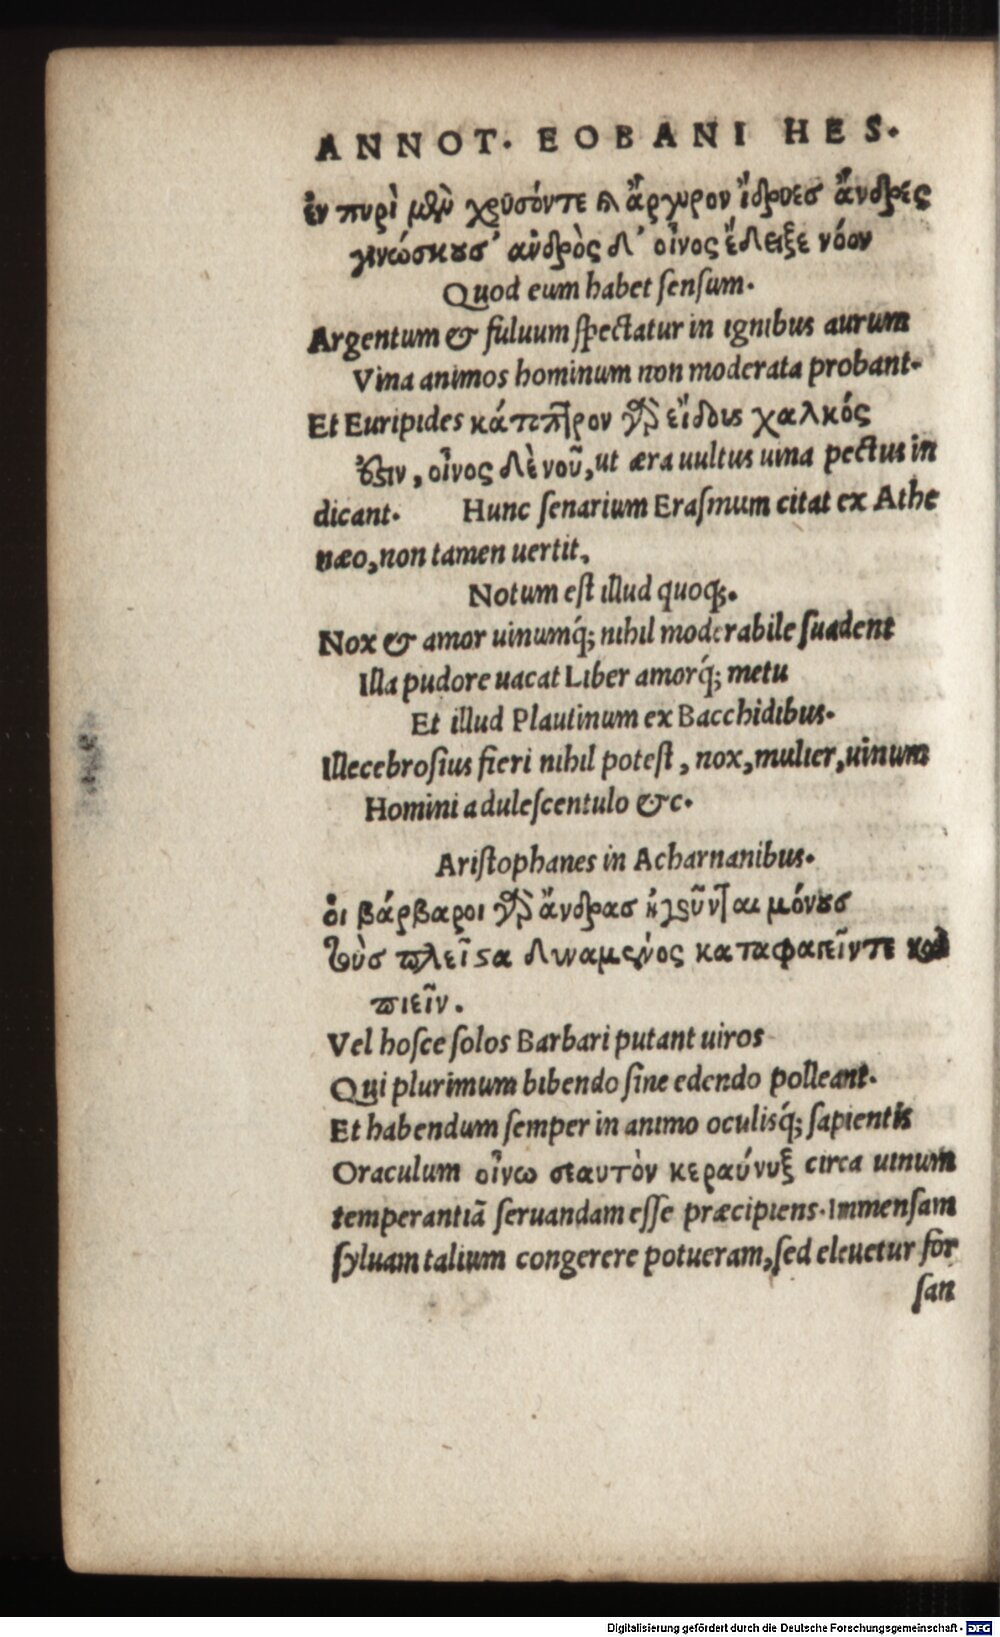 ANNOT. EOBANI HES.
ἐν πυρὶ μὲν χρυσόντε καὶ ἄργυρον ἴδρυεσ ἄνδρες
γινώσκουσ' ἀνδρὸς δ' οἶνος ἔδειξε νόον
Quod eum habet ſenſum.
Argentum & fuluum ſpectatur in ignibus aurum
Vina animos hominum non moderata probant.
Et Euripides κάτοπτρον γὰρ εἴδους χαλκός
ἐστιν, οἶνος δὲ νοῦ, ut æra uultus uina pectus in
dicant. Hunc ſenarium Eraſmum citat ex Athe
næo, non tamen uertit.
Notum eſt illud quoq;.
Nox & amor uinumq́; nihil moderabile ſuadent
Illa pudore uacat Liber amorq́; metu
Et illud Plautinum ex Bacchidibus.
Illecebroſius fieri nihil poteſt, nox, mulier, uinum
Homini aduleſcentulo &c.
Ariſtophanes in Acharnanibus.
ὁι βάρβαροι γὰρ ἄνδρασ μόνουσ
τοὺσ πλεῖστα δυναμένους καταφαγεῖντε καὶ
πιεῖν.
Vel hoſce ſolos Barbari putant uiros
Qui plurimum bibendo ſine edendo polleant.
Et habendum ſemper in animo oculisq́; ſapientis
Oraculum οἴνω σεαυτὸν circa uinum
temperantiã ſeruandam eſſe præcipiens. Immenſam
ſyluam talium congerere potueram, ſed eleuetur for
ſan
Digitalisierung gefördert durch die Deutsche Forschungsgemeinschaft - DFG